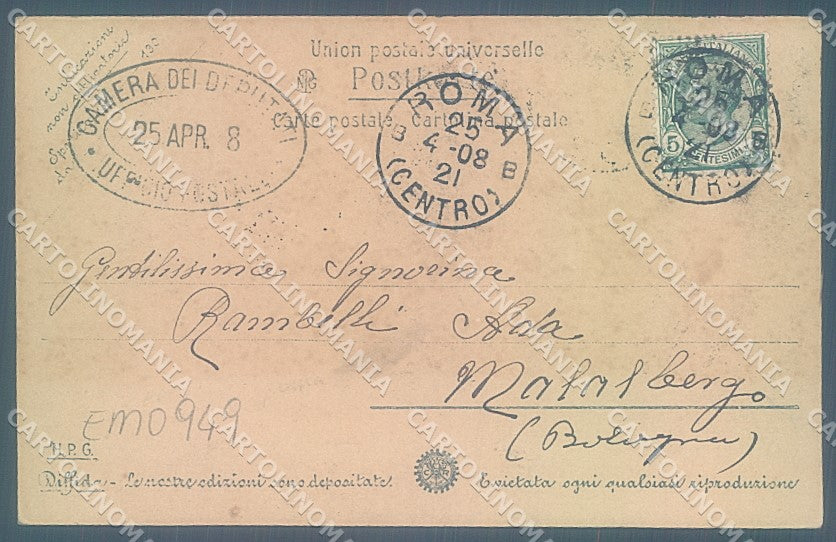 Union postale universelle
Carte postale. Cartolina postale
CAMERA DEI DEPUTATI
25 APR. 8
UFFICIO POSTALE
ROMA
25
4-08
21
B B
(CENTRO)
ROMA
25
4-08
21
B B
(CENTRO)
5
CENTESIMI
Gentilissima Signorina
Rambelli Alda
Malalbergo
(Bologna)
EMO949
N.P.G.
Diffida - Le nostre edizioni sono depositate
E vietata ogni qualsiasi riproduzione
CARTOLINOMANIA